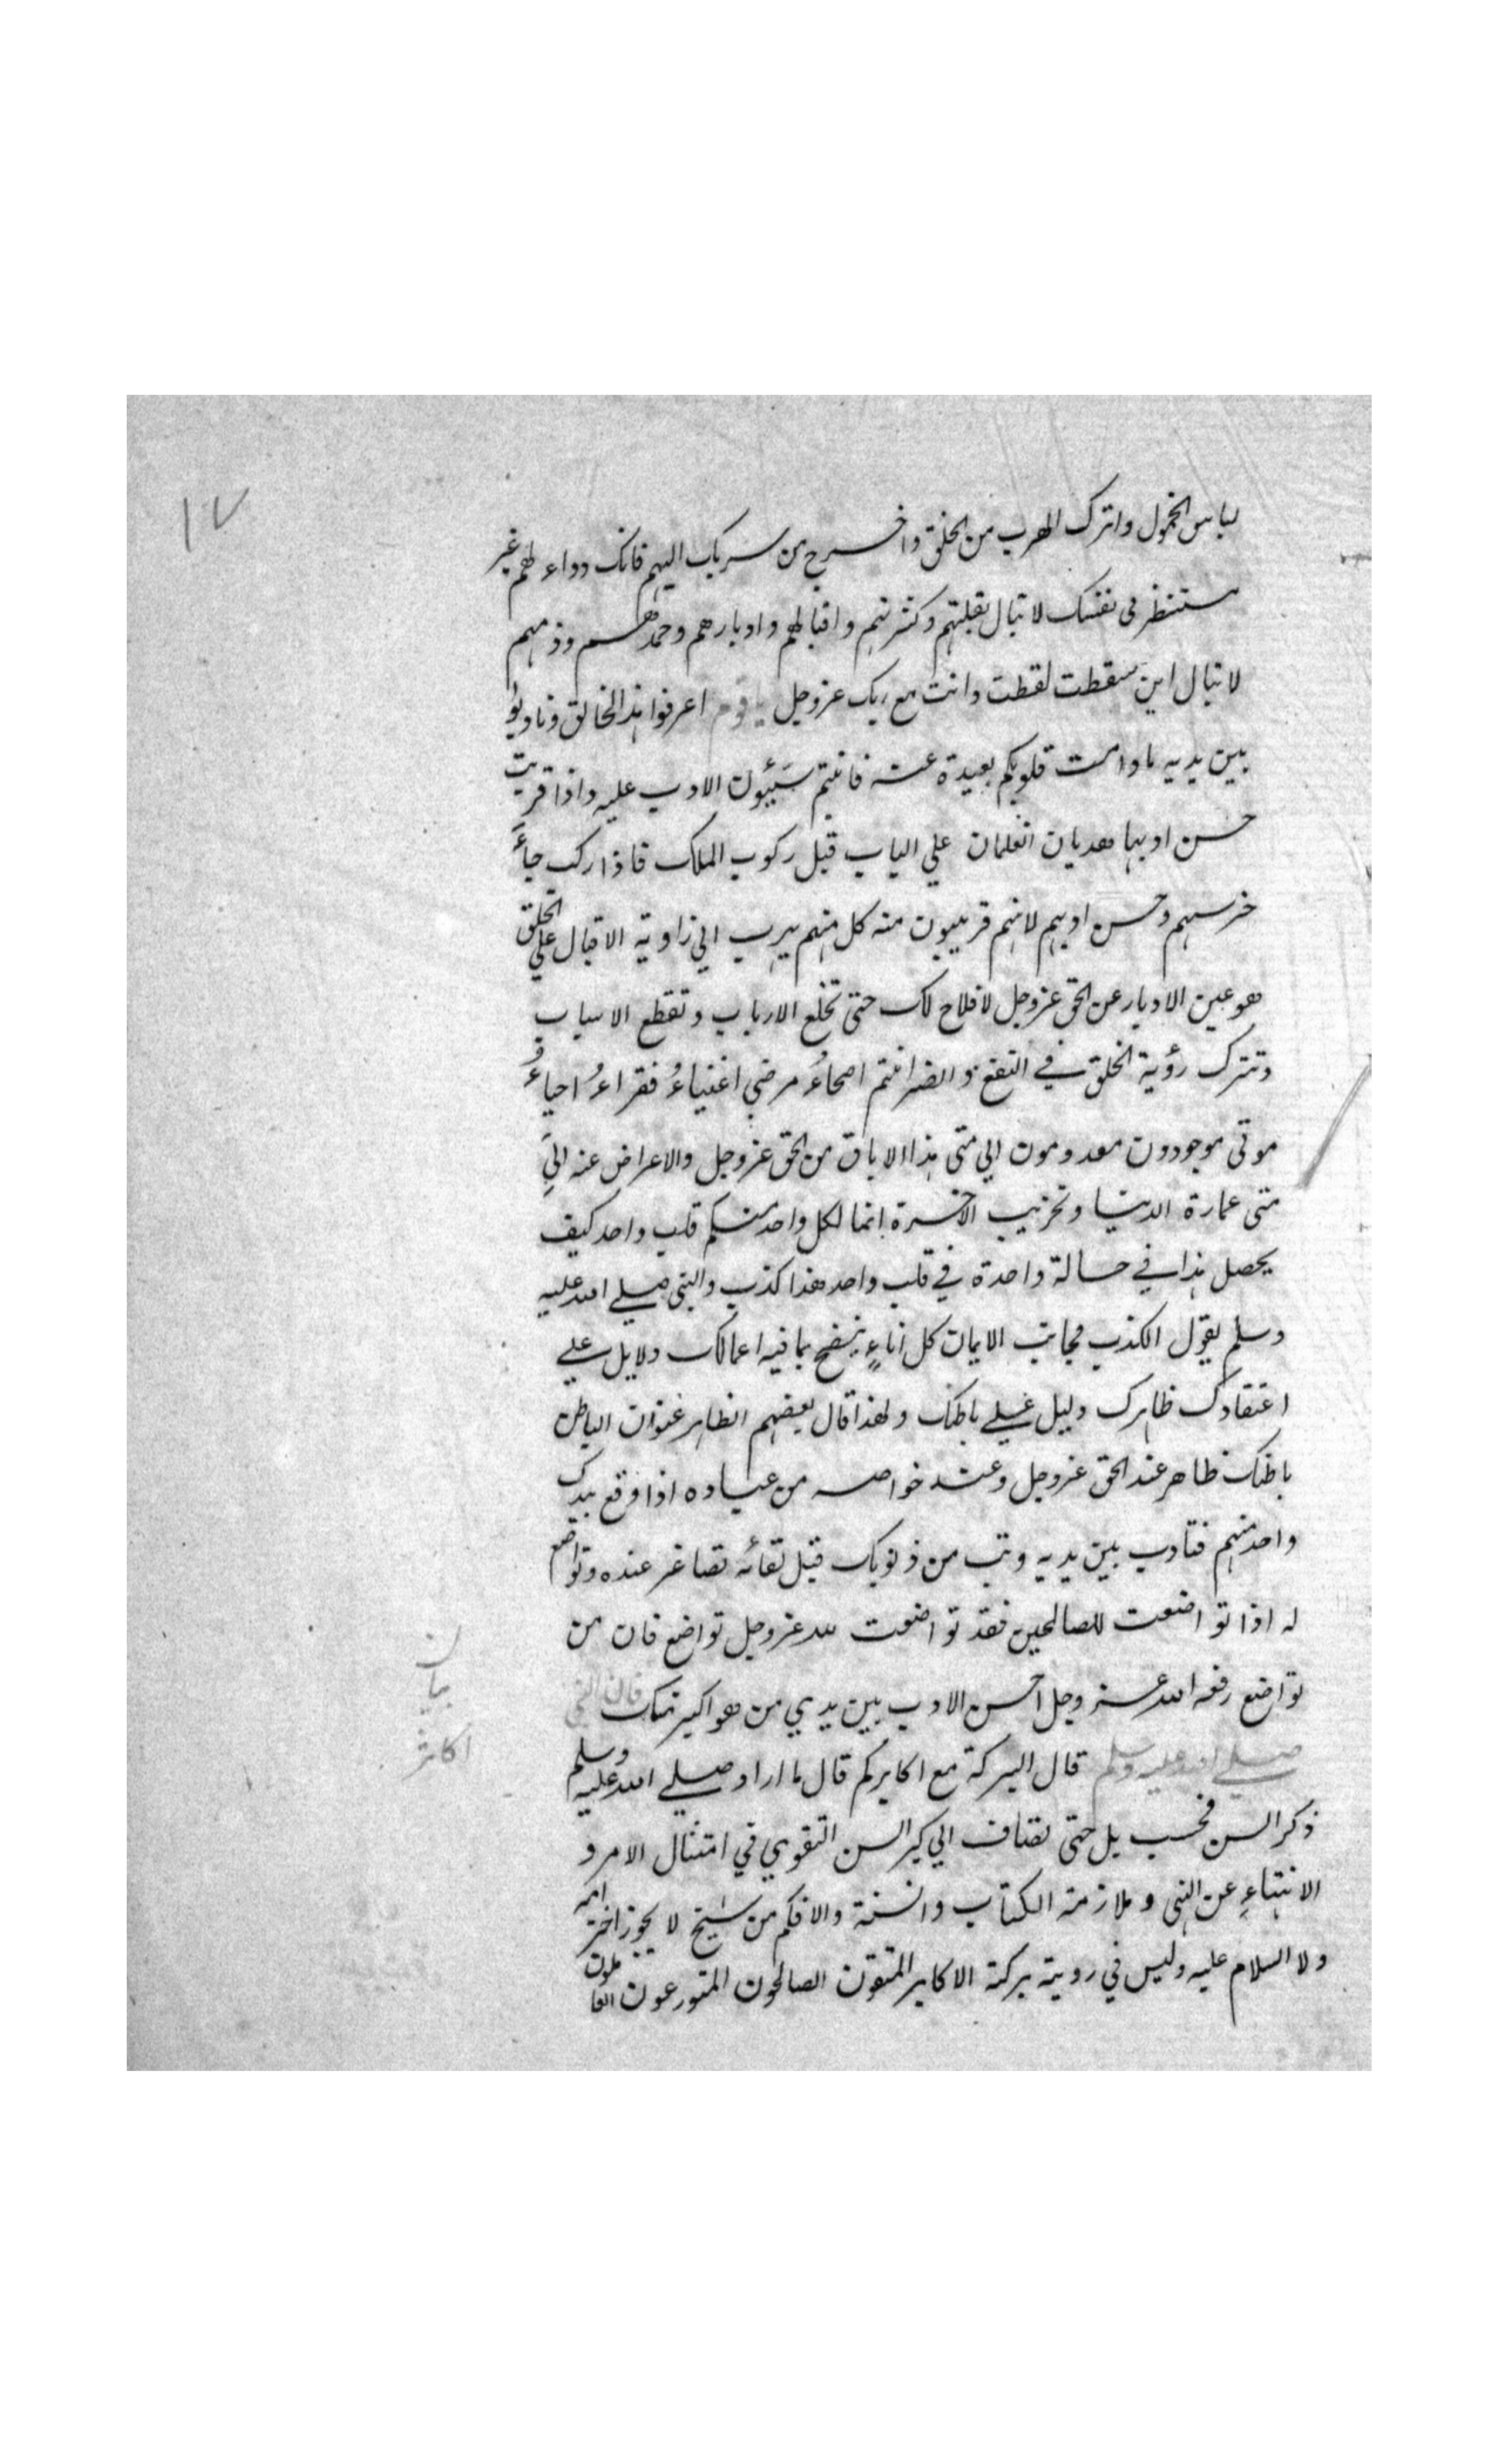 ١٧
لباس الخمول واترك الهرب من الخلق واخرج من سربك اليهم فانك دواء لهم غير
مستنظر فى نفسك لا تبال بقلتهم وكثرتهم واقبالهم وادبارهم وحمدهم وذمهم
لا تبال اين سقطت لقطت وانت مع ربك عزوجل يا قوم اعرفوا هذا الخالق وتادبوا
بين يديه مادامت قلوبكم بعيدة عنه فانتم سَيّئون الادب عليه واذا قربت
حسن ادبها هديان الغلمان علي الباب قبل ركوب الملك فاذا ركب جاءَ
خرسهم وحسن ادبهم لانهم قريبون منه كل منهم يهرب الي زاوية الاقبال علي الخلق
هو عين الادبار عن الحق عزوجل لا فلاح لك حتى تخلع الارباب وتقطع الاسباب
وتترك رؤية الخلق في النفع والضر انتم اصحاءُ مرضي اغنياءُ فقراءُ احياءُ
موتى موجودون معدومون الي متى هذا الاباق من الحق عزوجل والاعراض عنه الي
متى عمارة الدنيا وتخريب الاخرة انما لكل واحد منكم قلب واحد كيف
يحصل هذا في حالة واحدة في قلب واحد هذا كذب والنبى صلي الله عليه
وسلم يقول الكذب مجانب الايمان كل اناءٍ ينضح بما فيه اعمالك دلايل علي
اعتقادك ظاهرك دليل علي باطنك ولهذا قال بعضهم الظاهر عنوان الباطن
باطنك ظاهر عند الحق عزوجل وعند خواصه من عباده اذا وقع بيدك
واحد منهم فتادب بين يديه وتب من ذنوبك قبل لقائه تصاغر عنده وتواضع
له اذا تواضعت للصالحين فقد تواضعت لله عزوجل تواضع فان من
تواضع رفعه الله عز وجل احسن الادب بين يدي من هو اكبر منك فان النبي
صلي الله عليه وسلم قال البركة مع اكابركم قال ما اراد صلي الله عليه وسلم
ذكر السن فحسب بل حتى تضاف الي كبر السن التقوي في امتثال الامر و
الانتهاءِ عن النهى وملازمة الكتاب والسنة والا فكم من شيخ لا يجوز احترامه
ولا السلام عليه وليس في رويته بركة الاكابر المتقون الصالحون المتورعون العاملون
بيان
اكابر